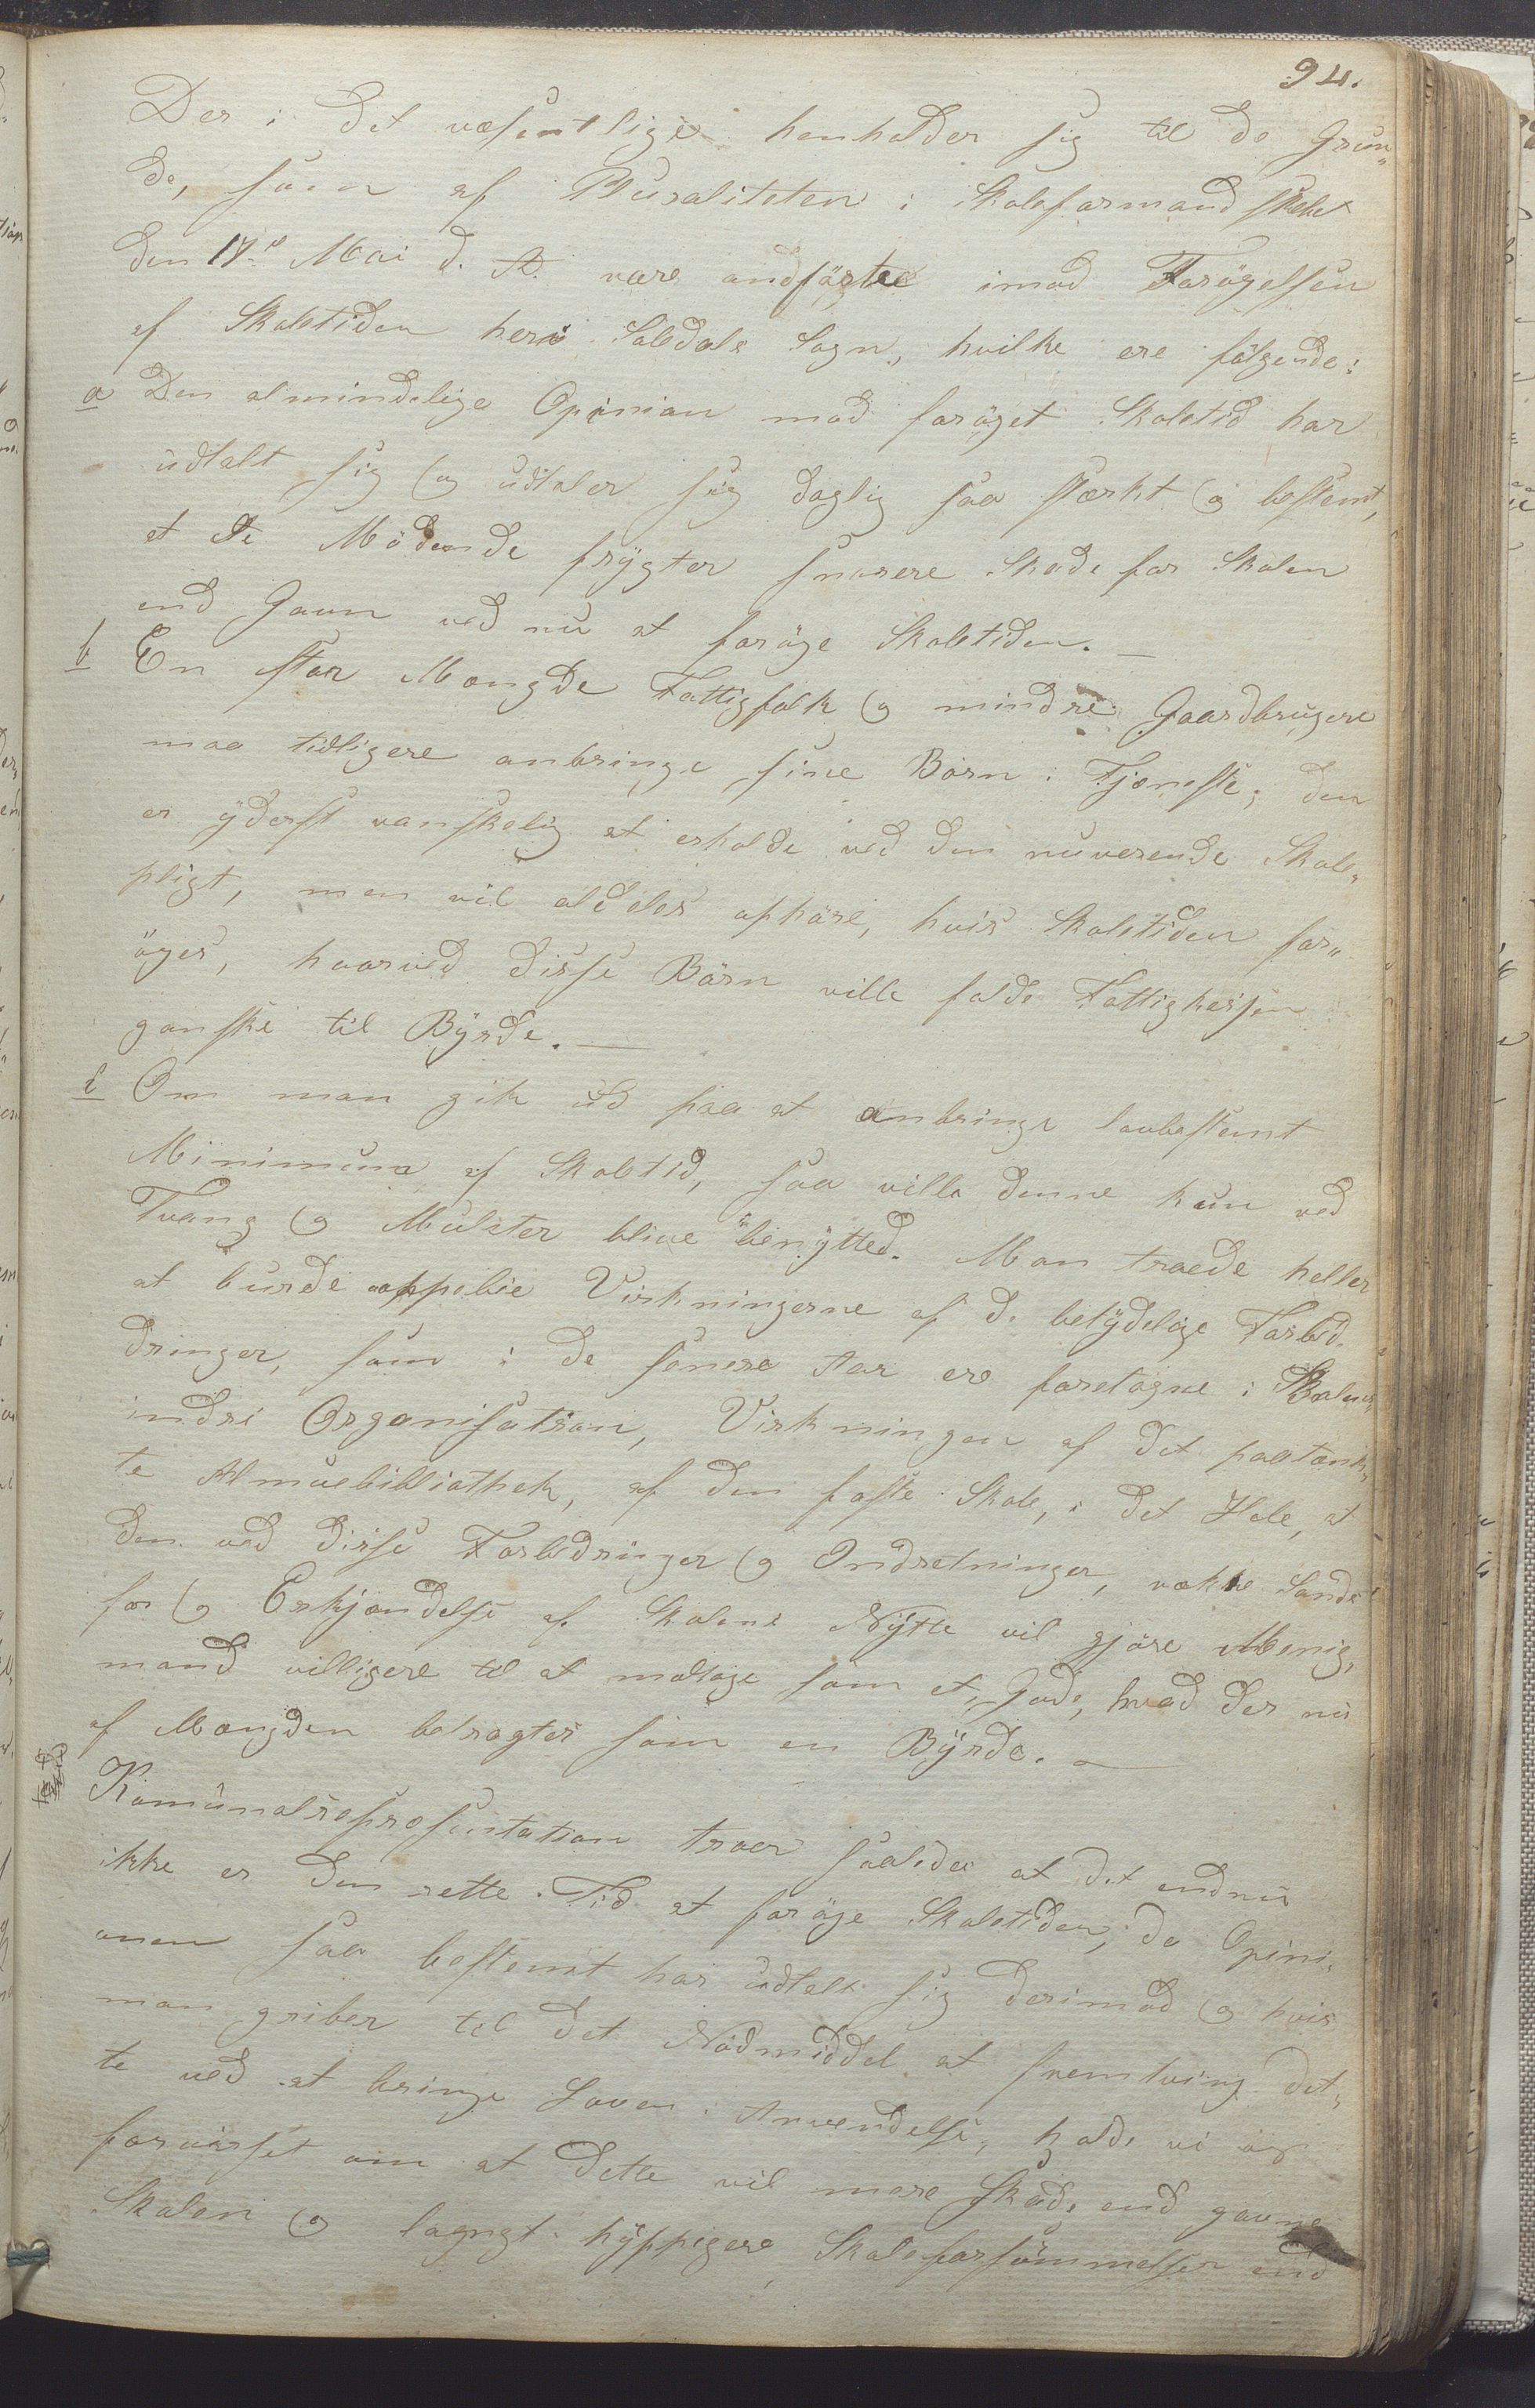 94.
Der i det væsentlige henholder sig til de Grun„
de, som af Pluraliteten i Skoleformandskabet
den 17de Mai d. A. vare andførte imod Forøgelsen
af Skoletiden heri Soledals Sogn, hvilke ere følgende:
a Den almindelige Opinion mod forøget Skoletid har
udtalt sig og udtaler sig daglig saa stærkt og bestemt,
at de Mødende frygter snarere Skade for Skolen
end Gavn ved nu at forøge Skoletiden. —
b En stor Mængde Fattigfolk og mindre Gaardbrugere
maa tidligere anbringe sine Børn i Tjeneste; den
er yderst vanskelig at erholde ved den nuværende Skole„
pligt, men vil aldeles ophøre, hvis Skoletiden for„
øges, hvorved disse Børn ville falde Fattigkassen
ganske til Byrde. —
c Om man gik ud paa at anbringe lovbestemt
Minimum af Skoletid, saa ville denne kun ved
Tvang og Mulcter blive benytted. Man troede heller
at burde oppebie Virkningerne af de betydelige Forbed„
dringer, som i de senere Aar ere foretagne i Skolens
indre Organisation, Virkningen af det paatænk„
te Almuebibliothek, af den faste Skole, i det Hele, at
den ved disse Forbedringer og Indretninger, vakte Sands
for og Erkjendelse af Skolens Nytte vil gjøre Menig„
mand villigere til at modtage som et Gode, hvad der nu
af Mængden betragtes som en Byrde. —
Komunalrepresentation troer saaledes at det endnu
ikke er den rette Tid at forøge Skoletiden, da Opini„
onen saa bestemt har udtalt sig derimod og hvis
man griber til det Nødmiddel at fremtving det„
te ved at bringe Loven i Anvendelse, holde vi os
forvisset om at dette vil mere skade end gavne
Skolen og lagngt hyppigere Skoleforsømmelser end